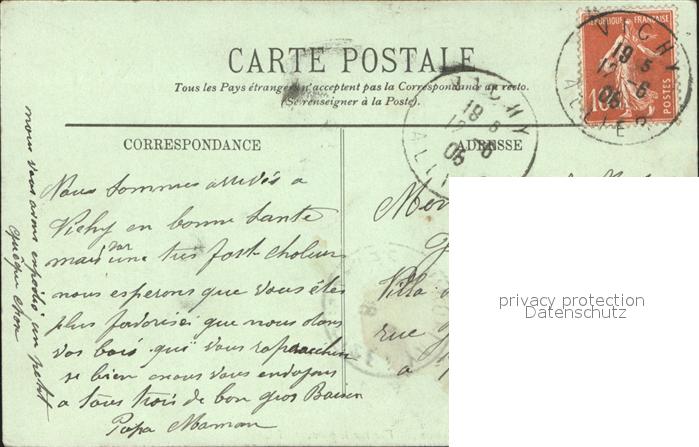 CARTE POSTALE
Tous les Pays étrangers n'acceptent pas la Correspondance au recto.
(Se renseigner à la Poste).
REPUBLIQUE FRANÇAISE
10
POSTES
VICHY
19 5
12 6
06
ALLIER
VICHY
19 5
12 6
06
ALLIER
CORRESPONDANCE
ADRESSE
Nous sommes arrivés a
Vichy en bonne Sante
mais par une tres fort chaleur
nous esperons que vous êtes
plus favorisé que nous dans
vos bois qui vous
se bien nous vous envoyons
a tous trois de bon gros Baisers
Papa Maman
nous vous avons expedié un petit
Villa
rue
a
privacy protection
Datenschutz